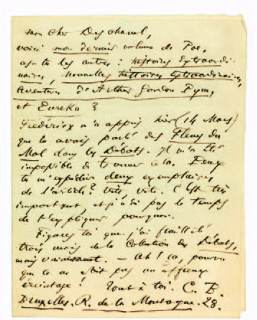 mon cher Deschanel,
voici mon dernier volume de Poe,
as-tu les autres : histoires Extraordi-
naires, Nouvelles histoires Extraordinaires,
Aventures d'Arthur Gordon Pym,
et Eureka ?
Frédérix m'a appris hier (14 Mars)
que tu avais parlé des Fleurs du
Mal dans les Débats. Il m'a été
impossible de trouver cela. Peux
tu m'expédier deux exemplaires
de l'article ? Vite, vite. C'est très
important et je n'ai pas le temps
de t'expliquer pourquoi.
Figures toi que j'ai fouillé
trois mois de la Collection des Débats,
mais vainement. — Ah ! ça, pourvu
que ce ne soit pas un affreux
éreintage ! Tout à toi. C. B.
Bruxelles, R. de la Montagne. 28.